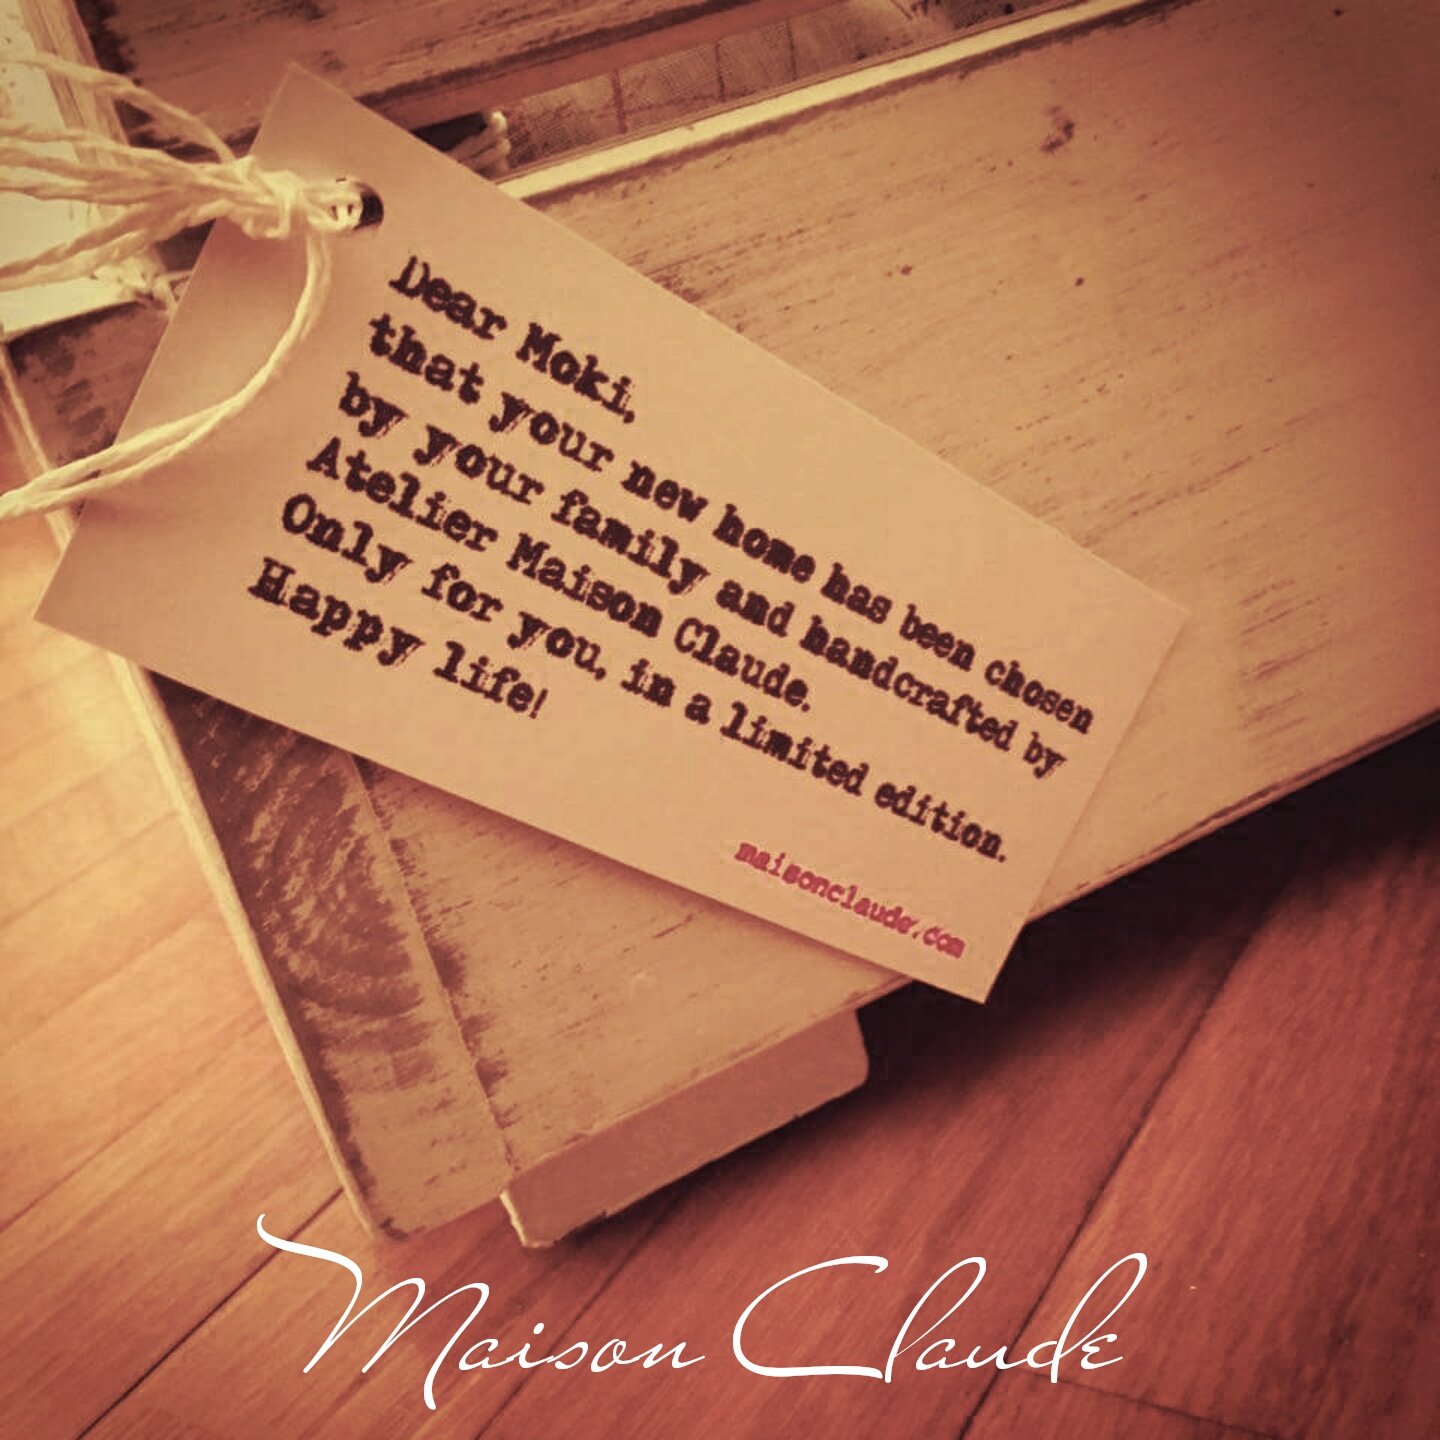 Dear Moki,
that your new home has been chosen
by your family and handcrafted by
Atelier Maison Claude.
Only for you, in a limited edition.
Happy life!
maisonclaude.com
Maison Claude